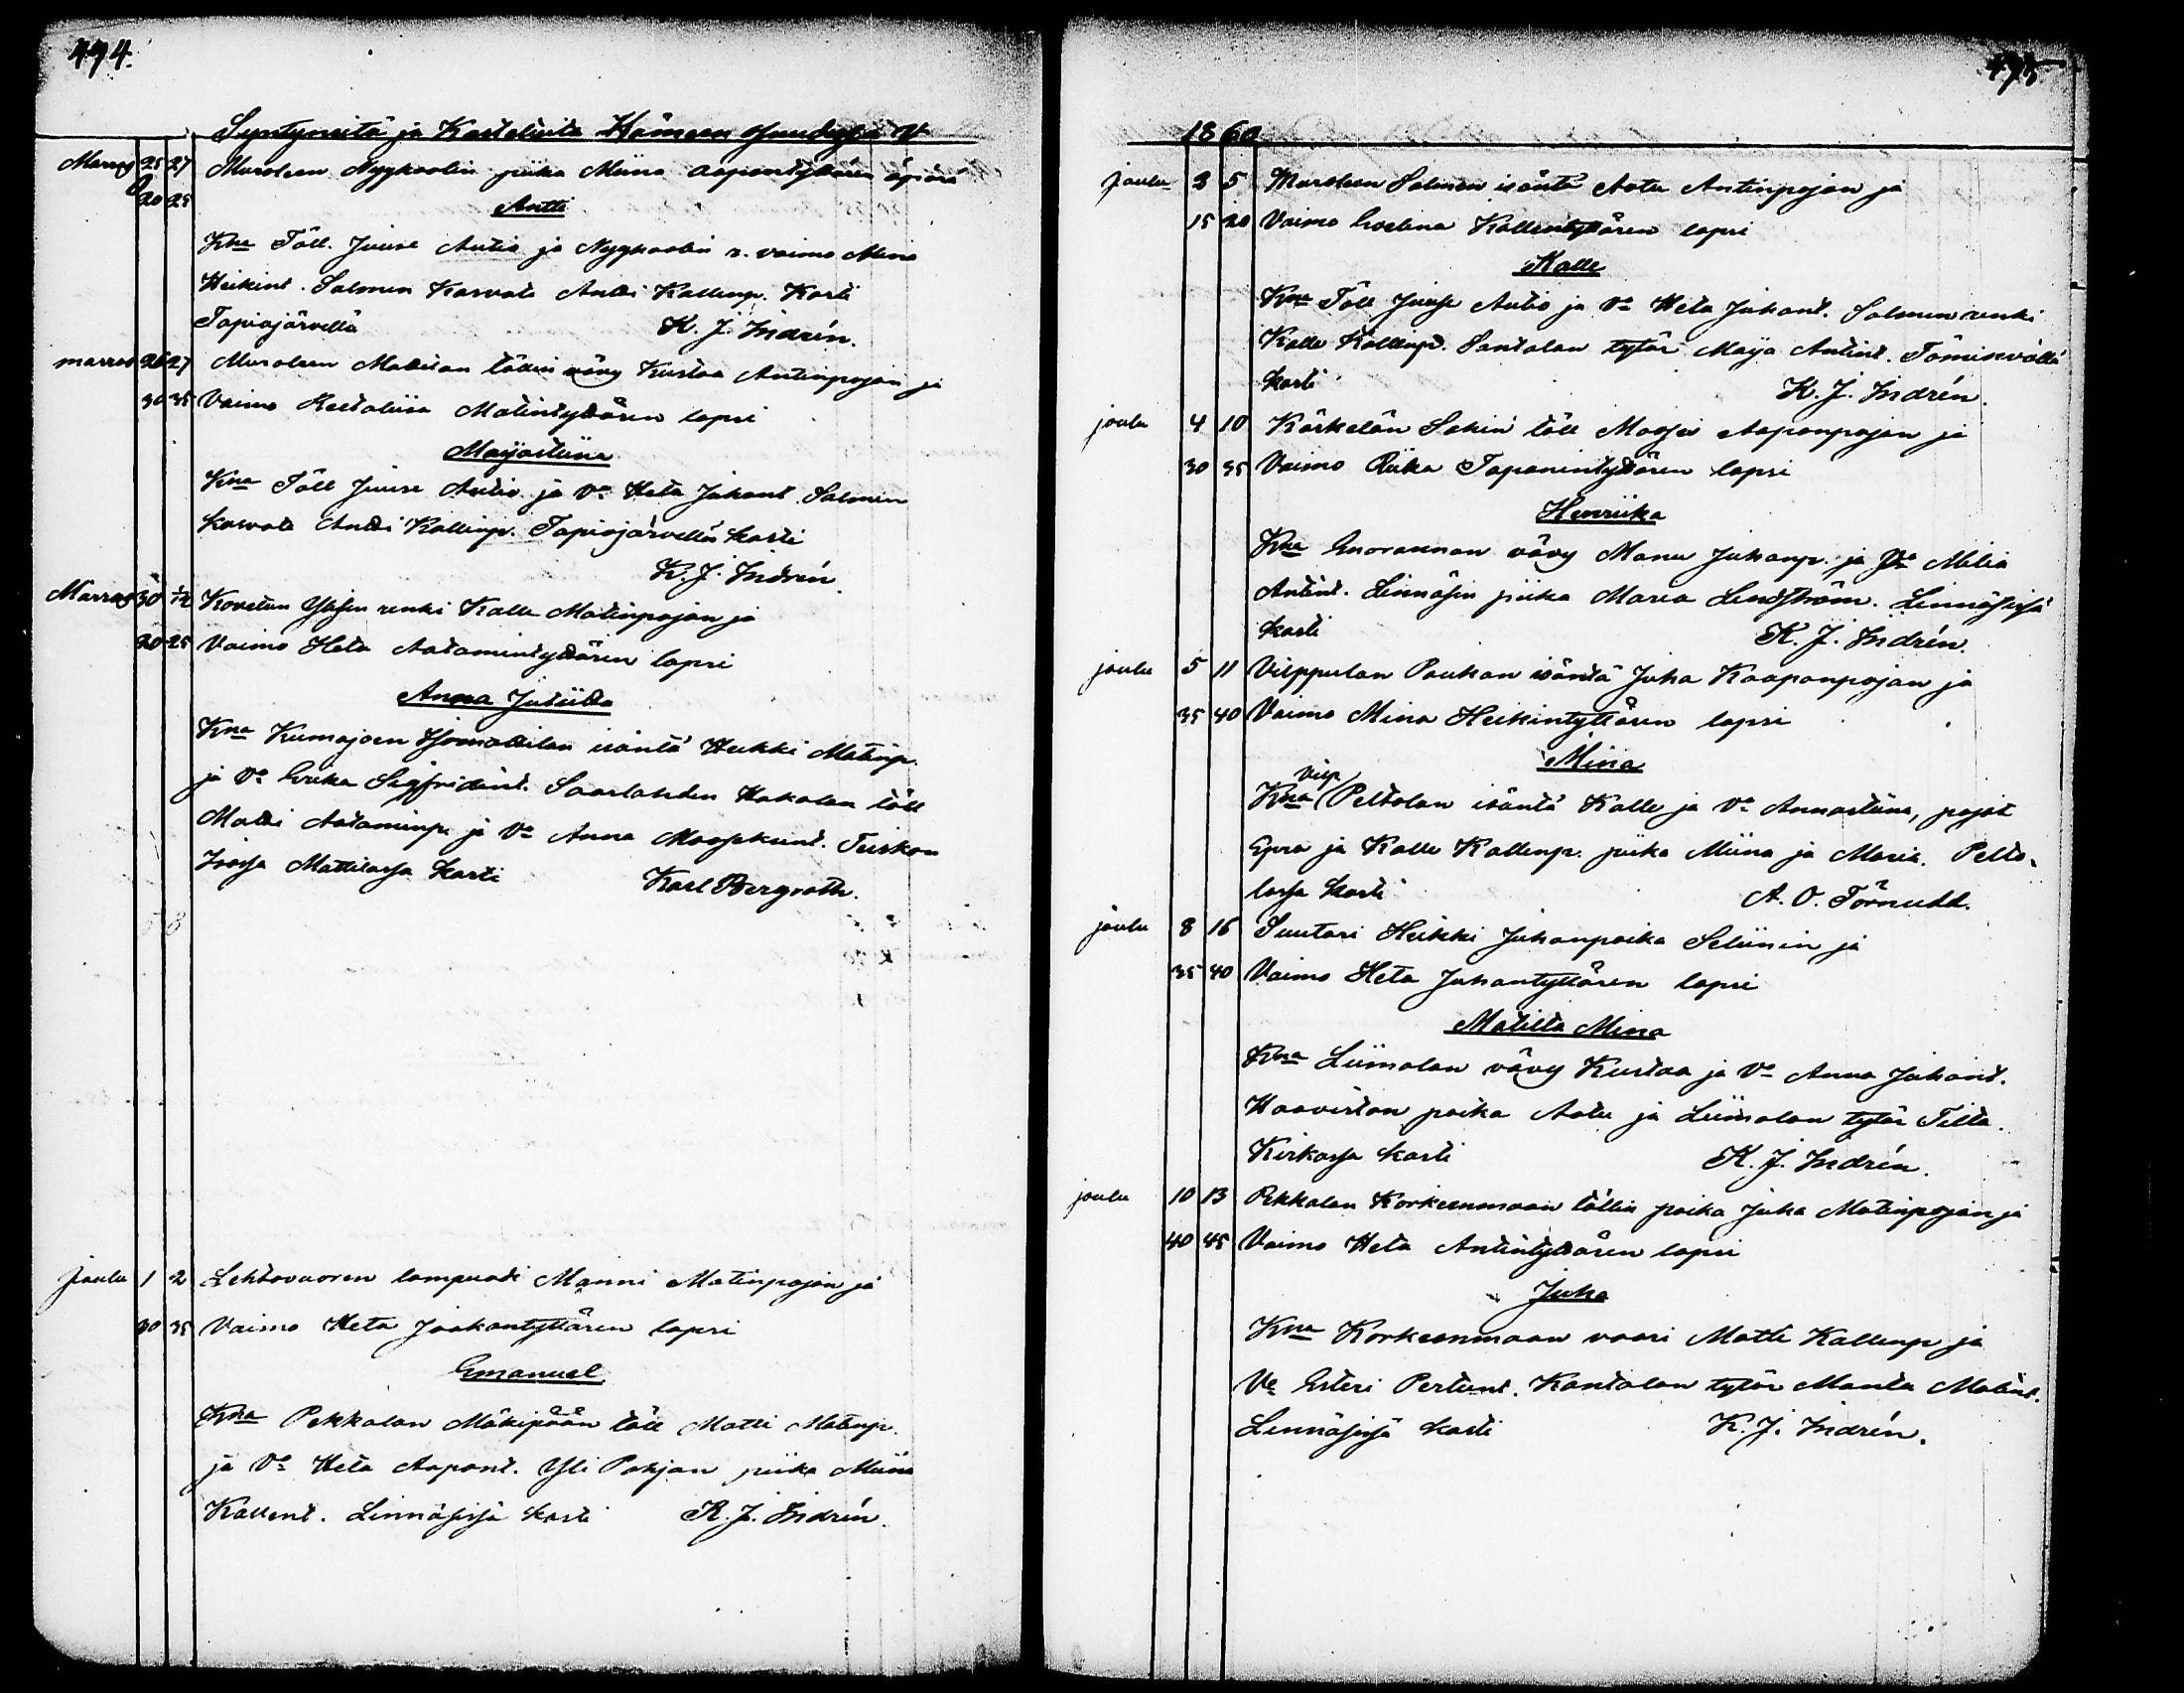 494.
Syntyneitä ja Kasteluita Hämeen Ruudessa V
Marras 25 27 Muroleen Nygkoolin piika Miina Aapontyttären äpärä
20 25
Antti
Kna Töll. Juuse Autio ja Nygkoolin r. vaimo Miina
Heikint. Salmen Kasvate Antti Kallenp. Kasti
Tapiojärvellä K. J. Indrén.
marras 26 27 Muroleen Mattilan töllin vävy Kustaa Antinpojan ja
30 35 Vaimo Eeetaliisa Matintyttären lapsi
Maijastiina
Kna Töll Juuse Autio ja Vo Heta Juhant. Salmen
kasvate Antti Kallenp. Tapiojärvellä kasti
K. J. Indrén
Marras 30 1/12 Kovetun Ylisen renki Kalle Matinpojan ja
20 25 Vaimo Heta Aatamintyttären lapsi
Anna Jutiitta
Kna Kumajoen isäntä Heikki Matinp.
ja Vo Eerika Sigfridint. Saarlahden Hakalan töll
Matti Aataminp. ja Vo Anna Moosekunt. Teiskon
Mattilassa kasti Karl Bergroth.
Joulu 1 2 Lehtovuoren lampuodi Manni Matinpojan ja
30 35 Vaimo Heta Jaakontyttären lapsi
Emanuel
Kna Pekkalan Mäkipään töll Matti Matinp.
ja Vo Heta Aapont. Yli Pohjan piika Miina
Kallent. Linnäsissä kasti K. J. Indrén.
495
1860
Joulu 3 5 Muroleen Salmen isäntä Aatu Antinpojan ja
15 20 Vaimo Eveliina Kallentyttären lapsi
Kalle
Kna Töll Juuse Autio ja Vo Heta Juhant. Salmen renki
Kalle Kallenp. Santalan tytär Maija Antint.
kasti K. J. Indrén.
joulu 4 10 Kärkelän Sakin töll Mooses Aaponpojan ja
30 35 Vaimo Riika Tapanintyttären lapsi
Henriika
Kna Enorannan vävy Manu Juhanp. ja Vo Milia
Antint. Linnäsin piika Maria Lindström. Linnäsissä
kasti K. J. Indrén.
joulu 5 11 Vilppulan Paukan isäntä Juha Kaaponpojan ja
35 40 Vaimo Mina Heikintyttären lapsi
Mina
Kna vilp Peltolan isäntä Kalle ja Vo Annastiina, pojat
Epra ja Kalle Kallenp. piika Miina ja Maria. Pelto-
lassa kasti A. O. Törnudd.
joulu 8 16 Suutari Heikki Juhanpoika Seliinin ja
35 40 Vaimo Heta Juhantyttären lapsi
Matilta Mina
Kna Liimolan vävy Kustaa ja Vo Anna Juhant.
Haaviston poika Aatu ja Liimolan tytär Tilta.
Kirkossa kasti K. J. Indrén.
joulu 10 13 Pekkalan Korkeenmaan töllin poika Juha Matinpojan ja
40 45 Vaimo Heta Antintyttären lapsi
Juha
Kna Korkeenmaan vaari Matti Kallenp ja
Vo Esteri Pertunt. Kantolan tytär Manta Matint.
Linnäsissä kasti K. J. Indrén.